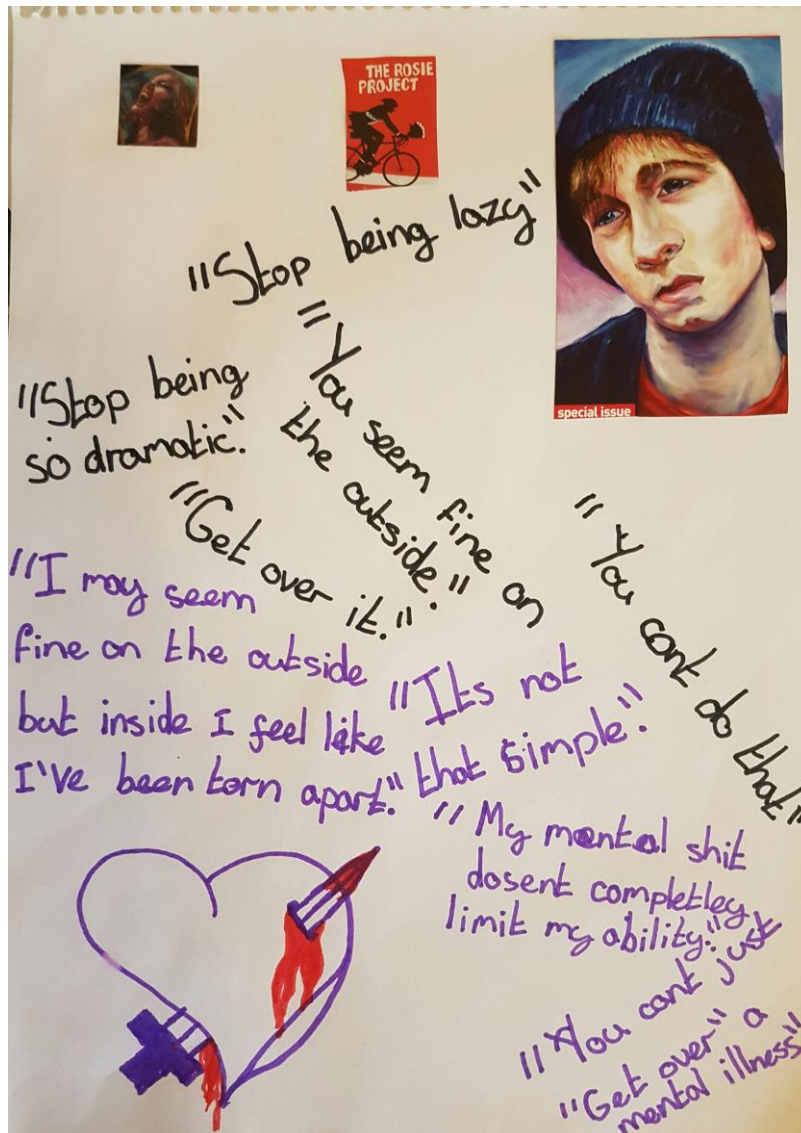 THE ROSIE
PROJECT
special issue
"Stop being lazy"
"You seem fine on
the outside."
"Stop being
so dramatic."
"Get over it."
"You cant do that"
"I may seem
fine on the outside
but inside I feel like
I've been torn apart."
"Its not
that simple."
"My mental shit
dosent completley
limit my ability."
"You cant just
"Get over" a
mental illness"